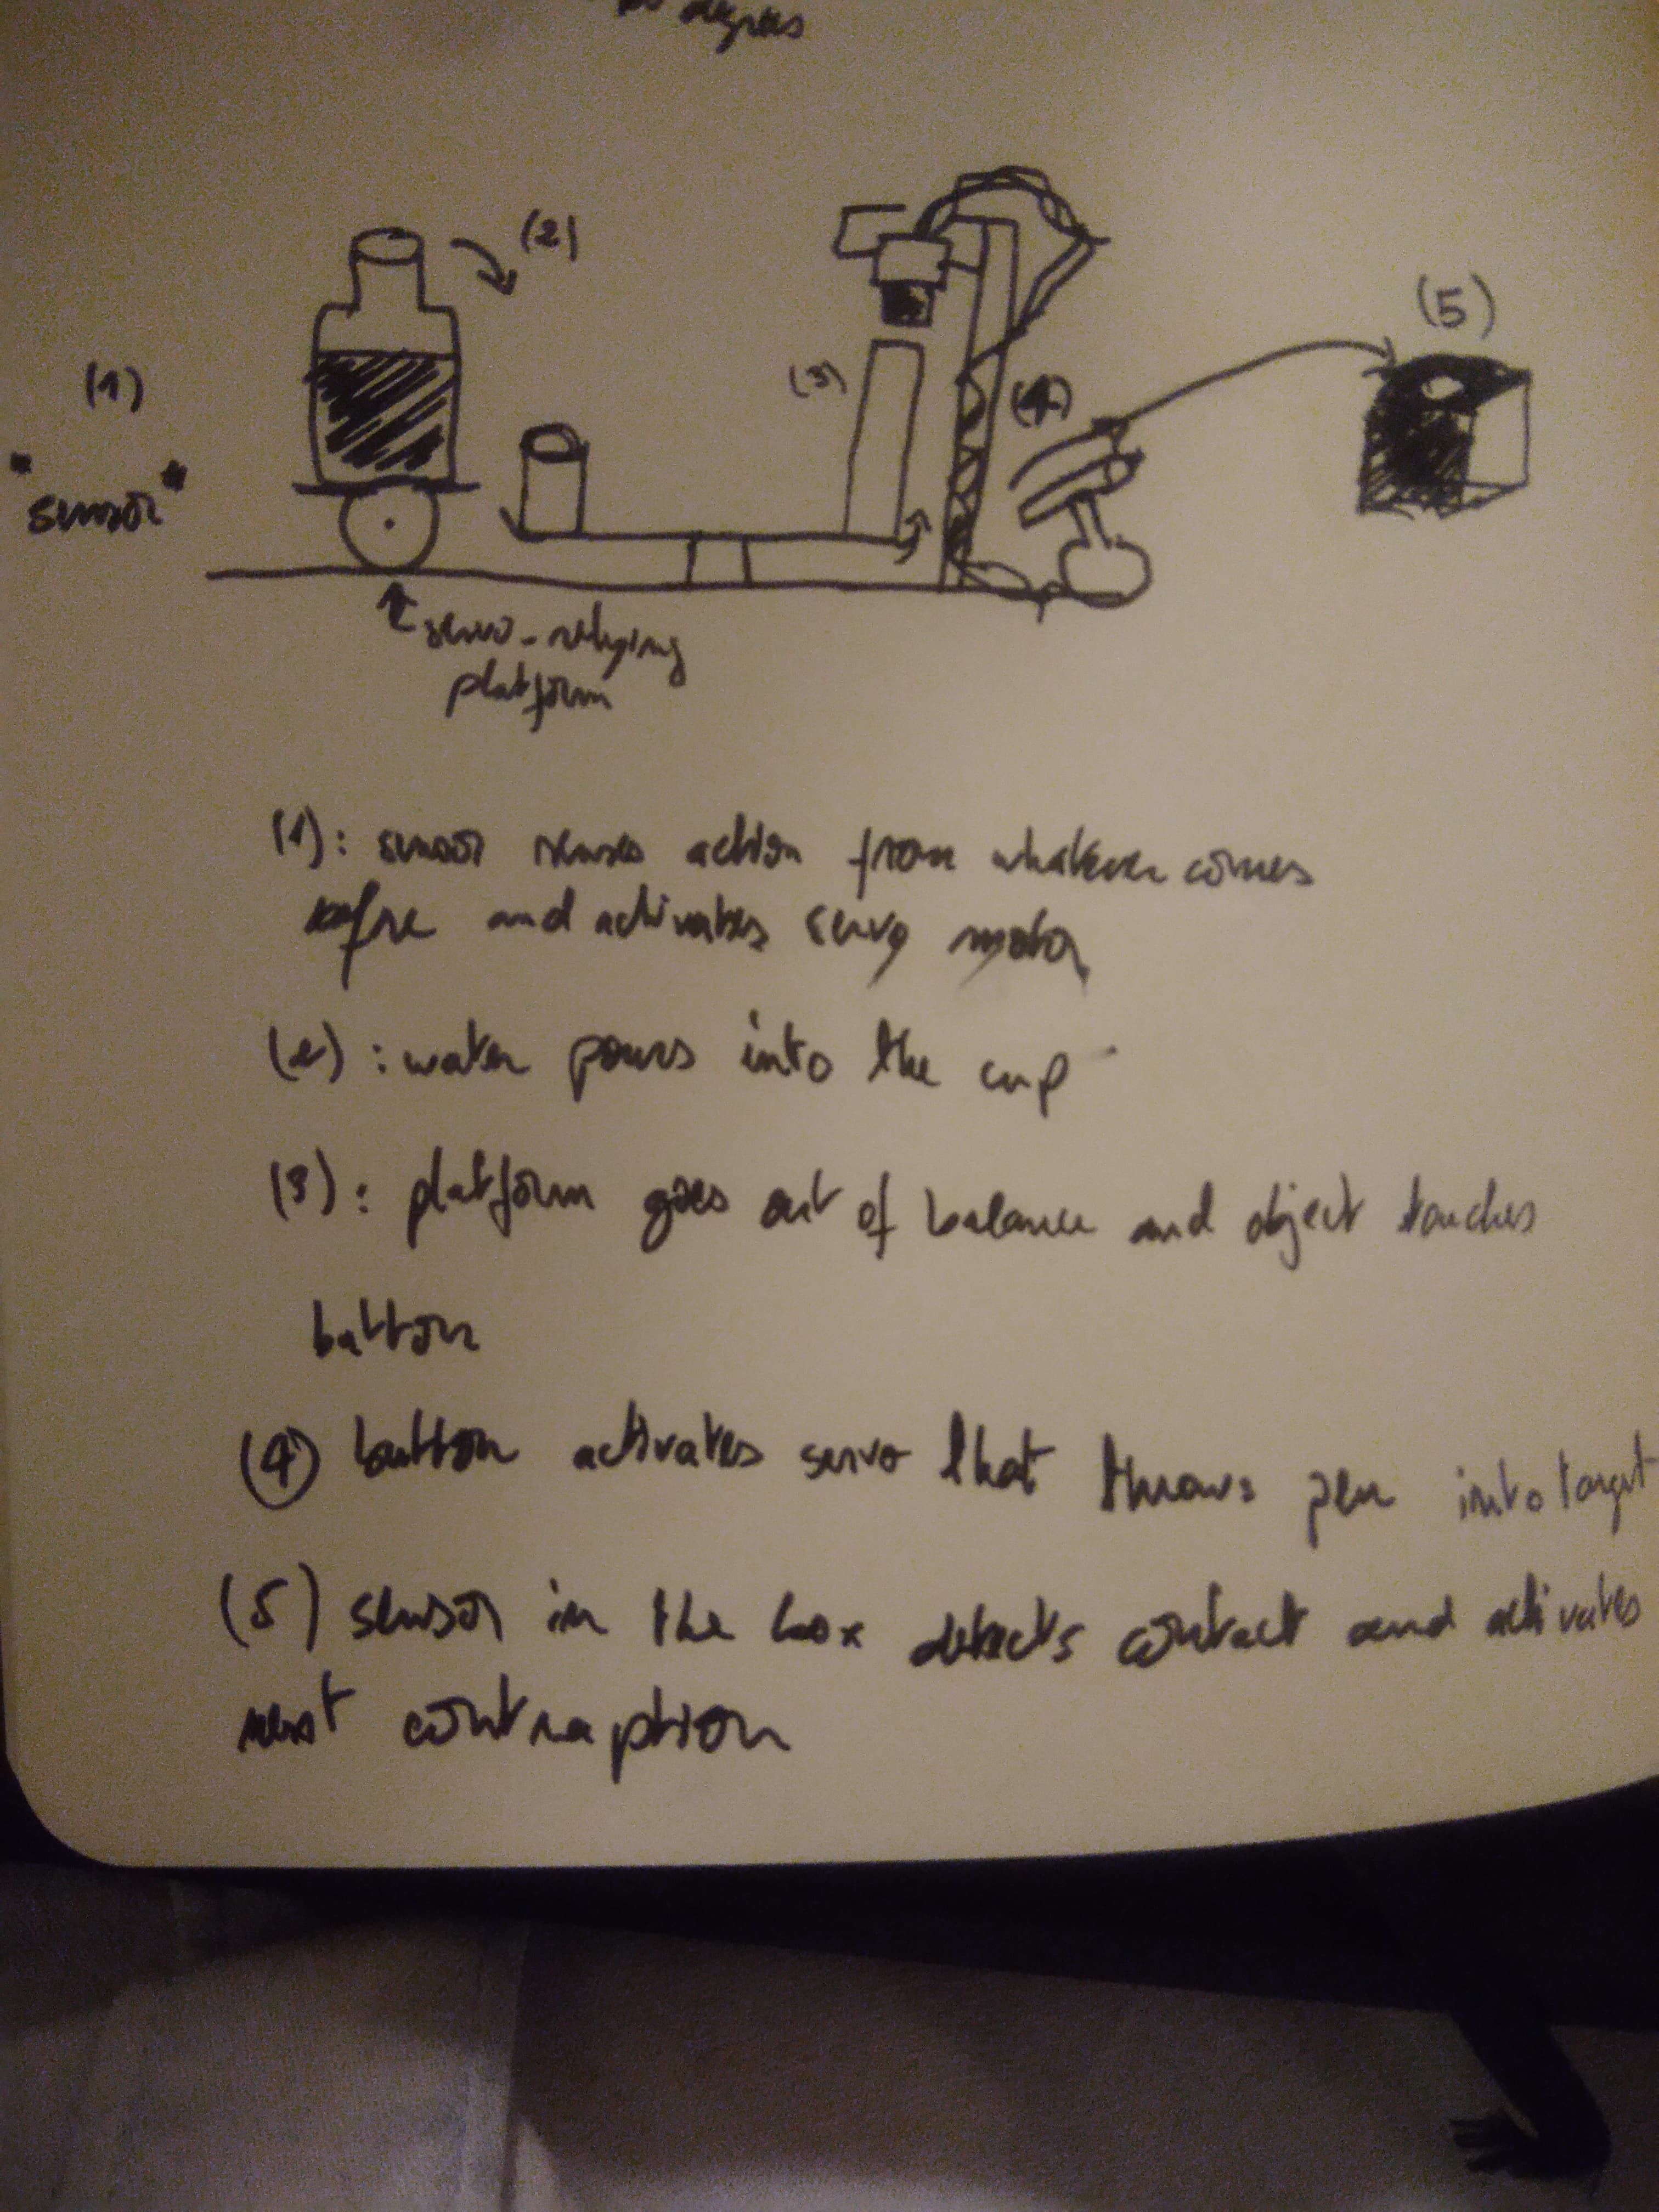 degrees
(2)
(5)
(1)
(3)
(4)
"sensor"
servo-relying
platform
(1): sensor senses action from whatever comes
before and activates servo motor
(2): water pours into the cup
(3): platform goes out of balance and object touches
button
(4) button activates servo that throws pen into target
(5) sensor in the box detects contact and activates
next contraption